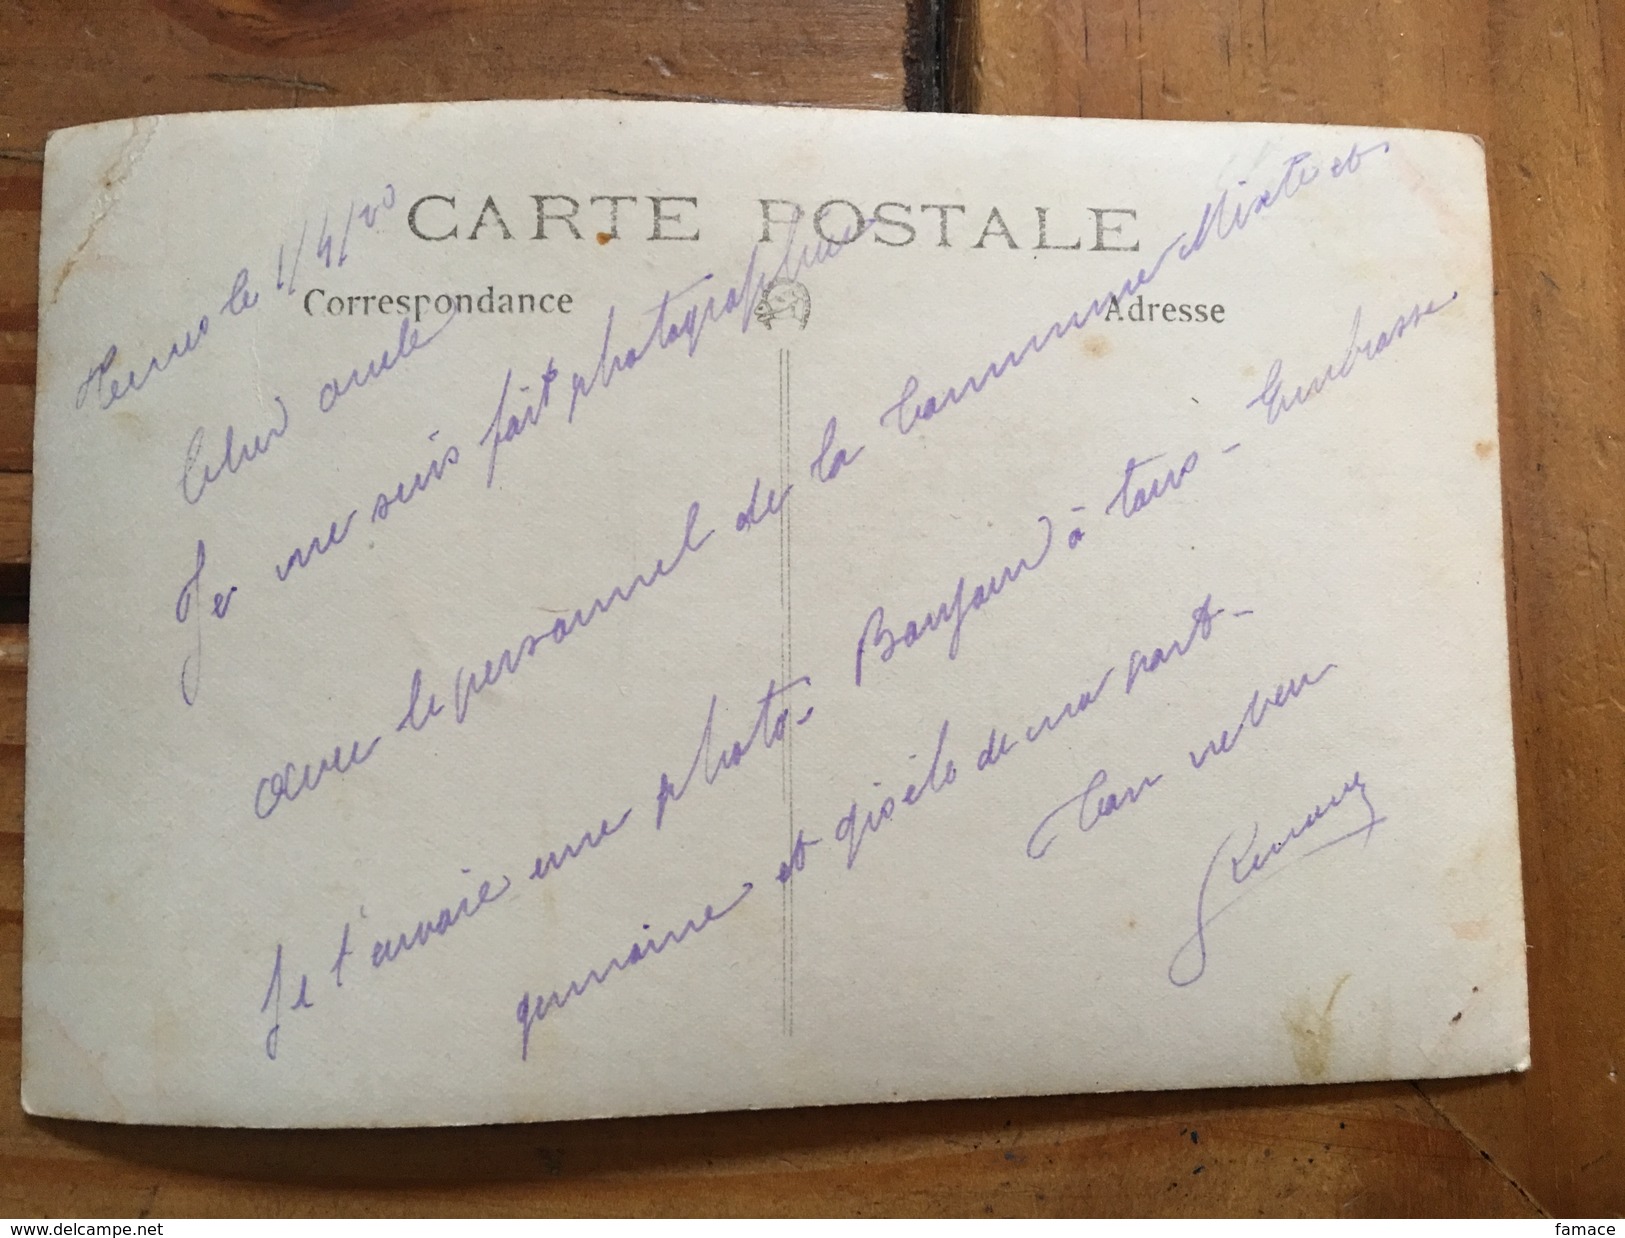 CARTE POSTALE
Correspondance
Adresse
le 1/4/20
Cher oncle
Je me suis fait photographier
avec le personnel de la Commune Mixte et
Je t'envoie une photo. Bonjour à tous - Embrasse
germaine et gisèle de ma part -
Ton neveu
www.delcampe.net
famace